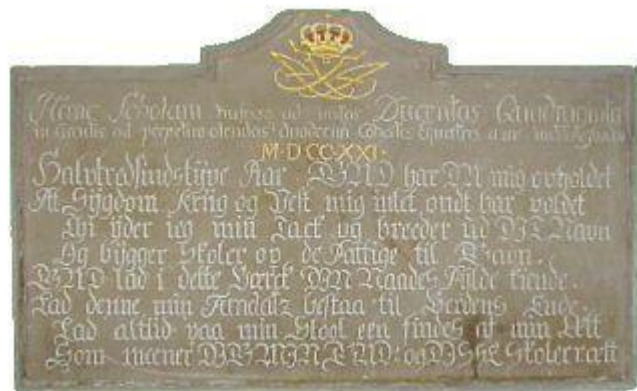 Scholam ad instar Ducentas Quadraginta
ad perpetuo duodecim
M·DCC·XXI·
Halvtredsindstyve Aar GUD har DU mig opholdet
At Sygdom Krig og Pest mig intet ondt har voldet
Thi yder ieg min Tack og breeder ud DIT Navn
Og bygger Skoler op de Fattige til Gavn.
GUD lad i dette Værck DIN Naades Fylde kiende.
Lad denne min Fundatz bestaa til Verdens Ende.
Lad altid paa min Stool een findes af min Ætt
Som meener DIG MIN GUD! og DISSE Skoler rætt